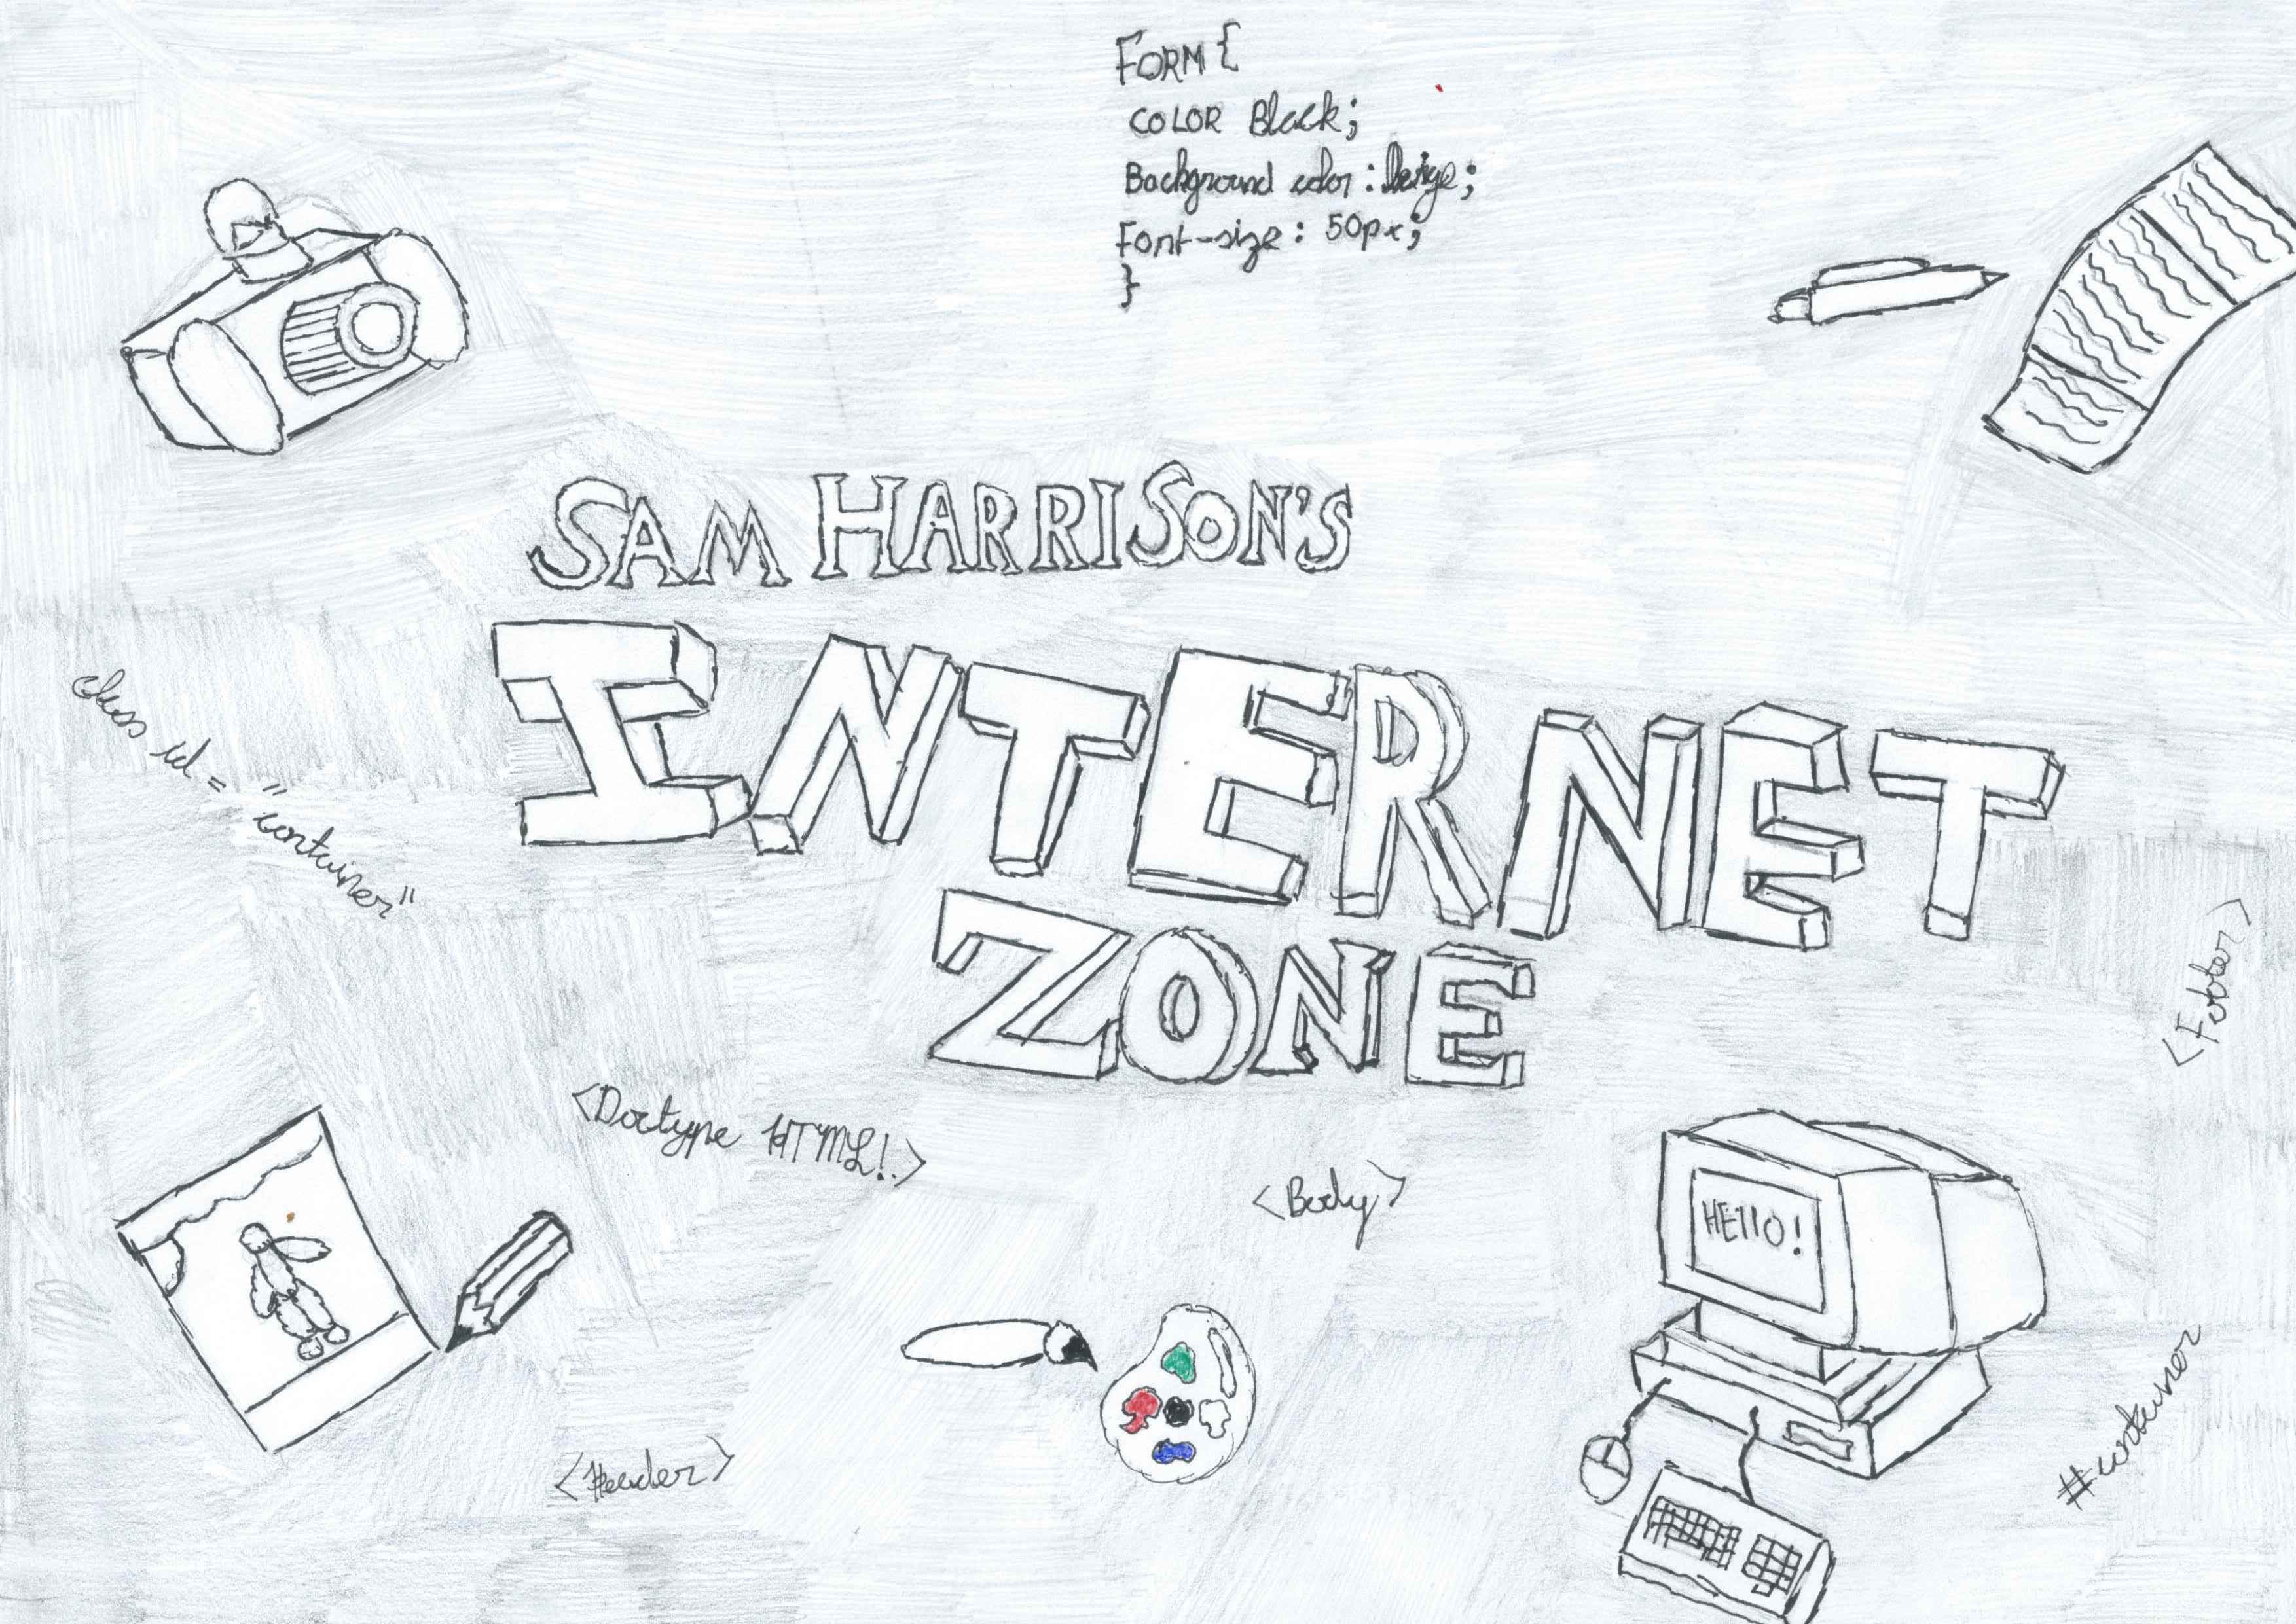 FORM {
COLOR Black;
Background color : Beige;
Font-size : 50px;
}
SAM HARRISON'S
INTERNET
ZONE
class id = "container"
<Footer>
<Doctype HTML!>
<Body>
HEllO!
<Header>
#container